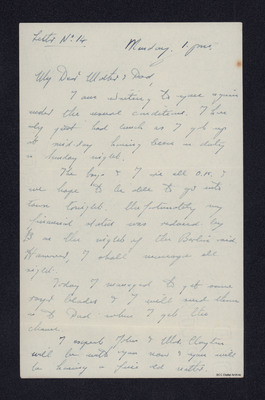 Letter No. 14
Monday, 1 pm.
My Dear Mother & Dad,
I am writing to you again
under the usual conditions. I have
only just had lunch as I got up
at midday having been on duty
Sunday night.
The boys & I are all O.K. &
we hope to be able to go into
town tonight. Unfortunately my
financial status was reduced by
on the night of the Berlin raid.
However, I shall manage all
right.
Today I managed to get some
razor blades & I will send them
on to Dad when I get the
chance.
I suspect John & Wid Clayton
will be with you now & you will
be having a fine old natter.